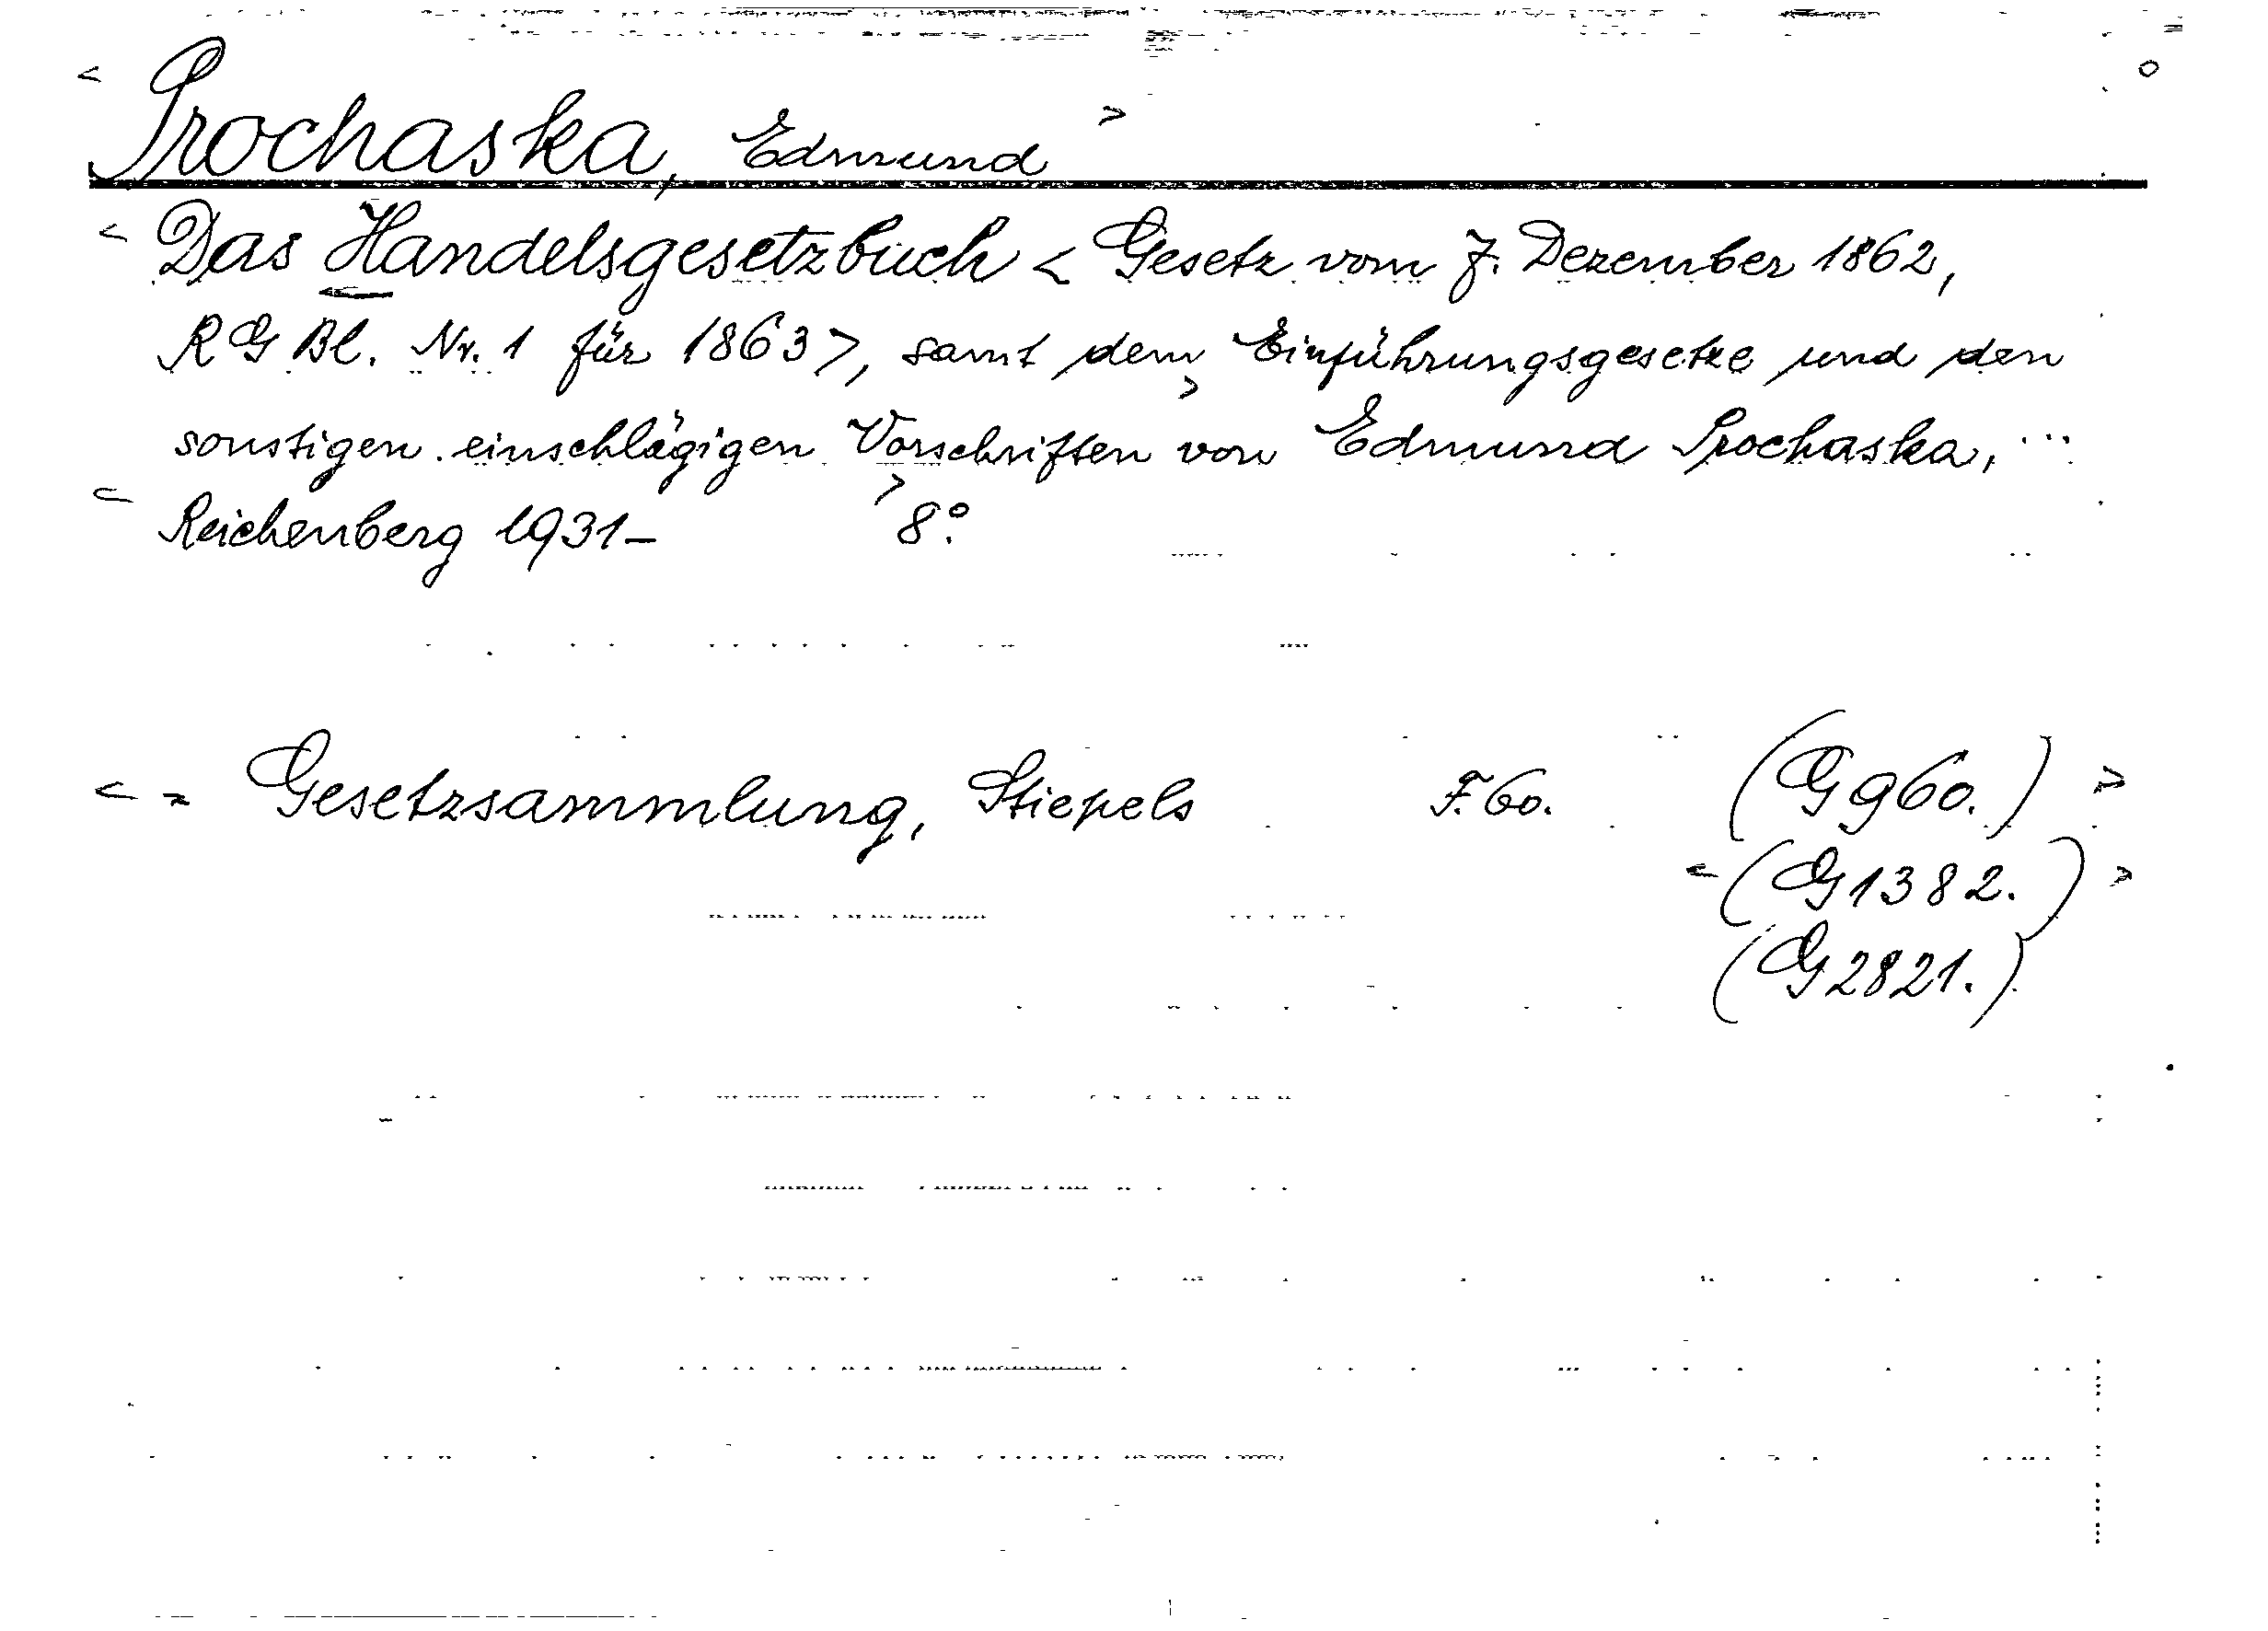 < Prochaska, Edmund >
< Das Handelsgesetzbuch < Gesetz vom 7. Dezember 1862,
RGBl. Nr. 1 für 1863 >, samt dem > Einführungsgesetze und den
sonstigen einschlägigen Vorschriften von Edmund Prochaska, ...
< Reichenberg 1931- > 8°.
< = Gesetzsammlung, Stiepels F. 60. (G 960.) >
< (G 1382.) >
(G 2821.)